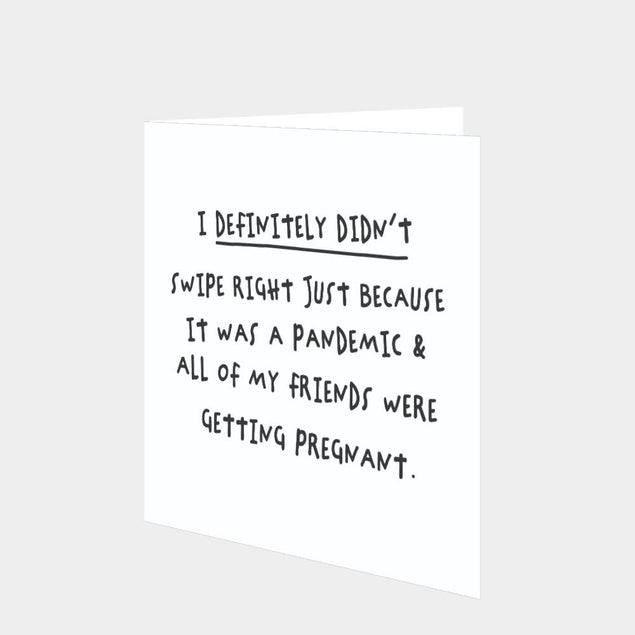 I DEFINITELY DIDN'T
SWIPE RIGHT JUST BECAUSE
IT WAS A PANDEMIC &
ALL OF MY FRIENDS WERE
GETTING PREGNANT.